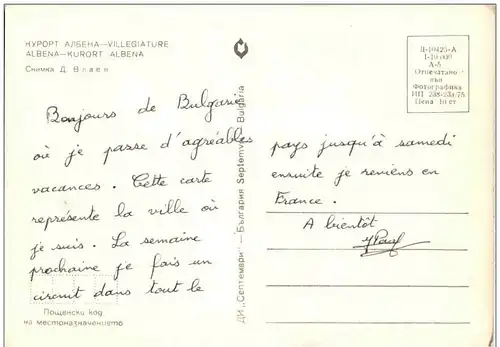 КУРОРТ АЛБЕНА—VILLEGIATURE
ALBENA—KURORT ALBENA
Снимка Д. Влаев
Д-10425-А
А-5
Отпечатано
във
Фотографика
Цена 10 ст
Bonjours de Bulgarie
où je passe d'agréables
vacances. Cette carte
représente la ville où
je suis. La semaine
prochaine je fais un
circuit dans tout le
pays jusqu'à samedi
ensuite je reviens en
France.
A bientôt
Пощенски код
на местоназначението
ДИ „Септември" — България Septemvri Bulgaria